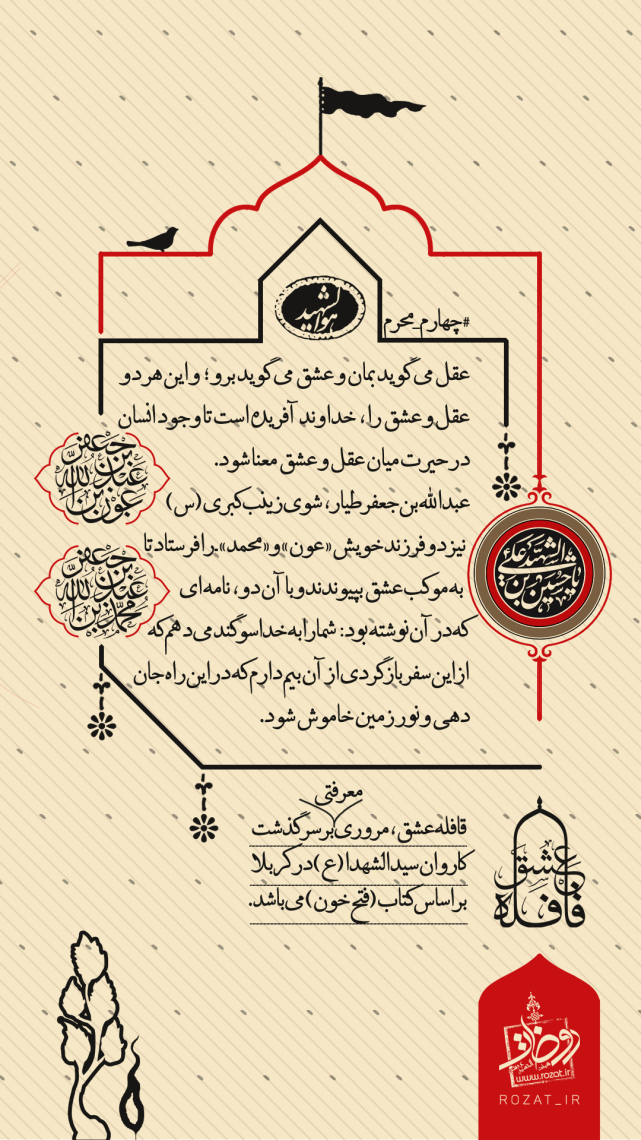 هوالشهید
#چهارم_محرم
عقل می‌گوید بمان و عشق می‌گوید برو؛ و این هر دو
عقل و عشق را، خداوند آفریده است تا وجود انسان
در حیرت میان عقل و عشق معنا شود.
عبدالله بن جعفر طیار، شوی زینب کبری (س)
نیز دو فرزند خویش «عون» و «محمد» را فرستاد تا
به موکب عشق بپیوندند و با آن دو، نامه‌ای
که در آن نوشته بود: شما را به خدا سوگند می‌دهم که
از این سفر بازگردی از آن بیم دارم که در این راه جان
دهی و نور زمین خاموش شود.
عون بن عبدالله بن جعفر
محمد بن عبدالله بن جعفر
یا حسین بن علی الشهید
معرفتی
قافله عشق، مروری بر سرگذشت
کاروان سیدالشهدا (ع) در کربلا
براساس کتاب (فتح خون) می‌باشد.
قافله عشق
روضات
www.rozat.ir
ROZAT_IR